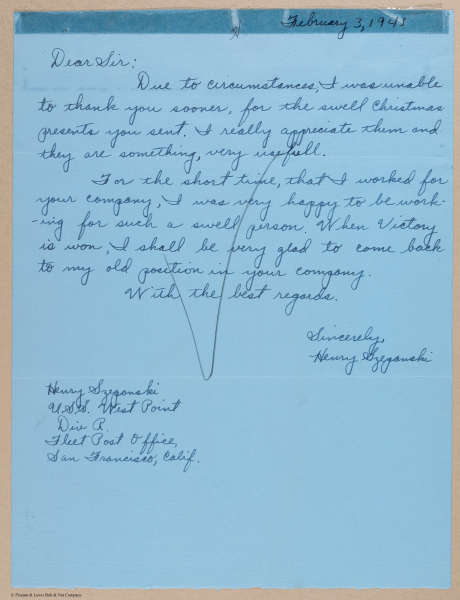 February 3, 1943
Dear Sir:
Due to circumstances, I was unable
to thank you sooner, for the swell Christmas
presents you sent. I really appreciate them and
they are something, very usefull.
For the short time, that I worked for
your company, I was very happy to be work-
-ing for such a swell person. When Victory
is won, I shall be very glad to come back
to my old position in your company.
With the best regards.
Sincerely,
Henry Szeganski
Henry Szeganski
U.S.S. West Point
Div R.
Fleet Post Office,
San Francisco, Calif.
© Pheoll & Lewis Bolt & Nut Company